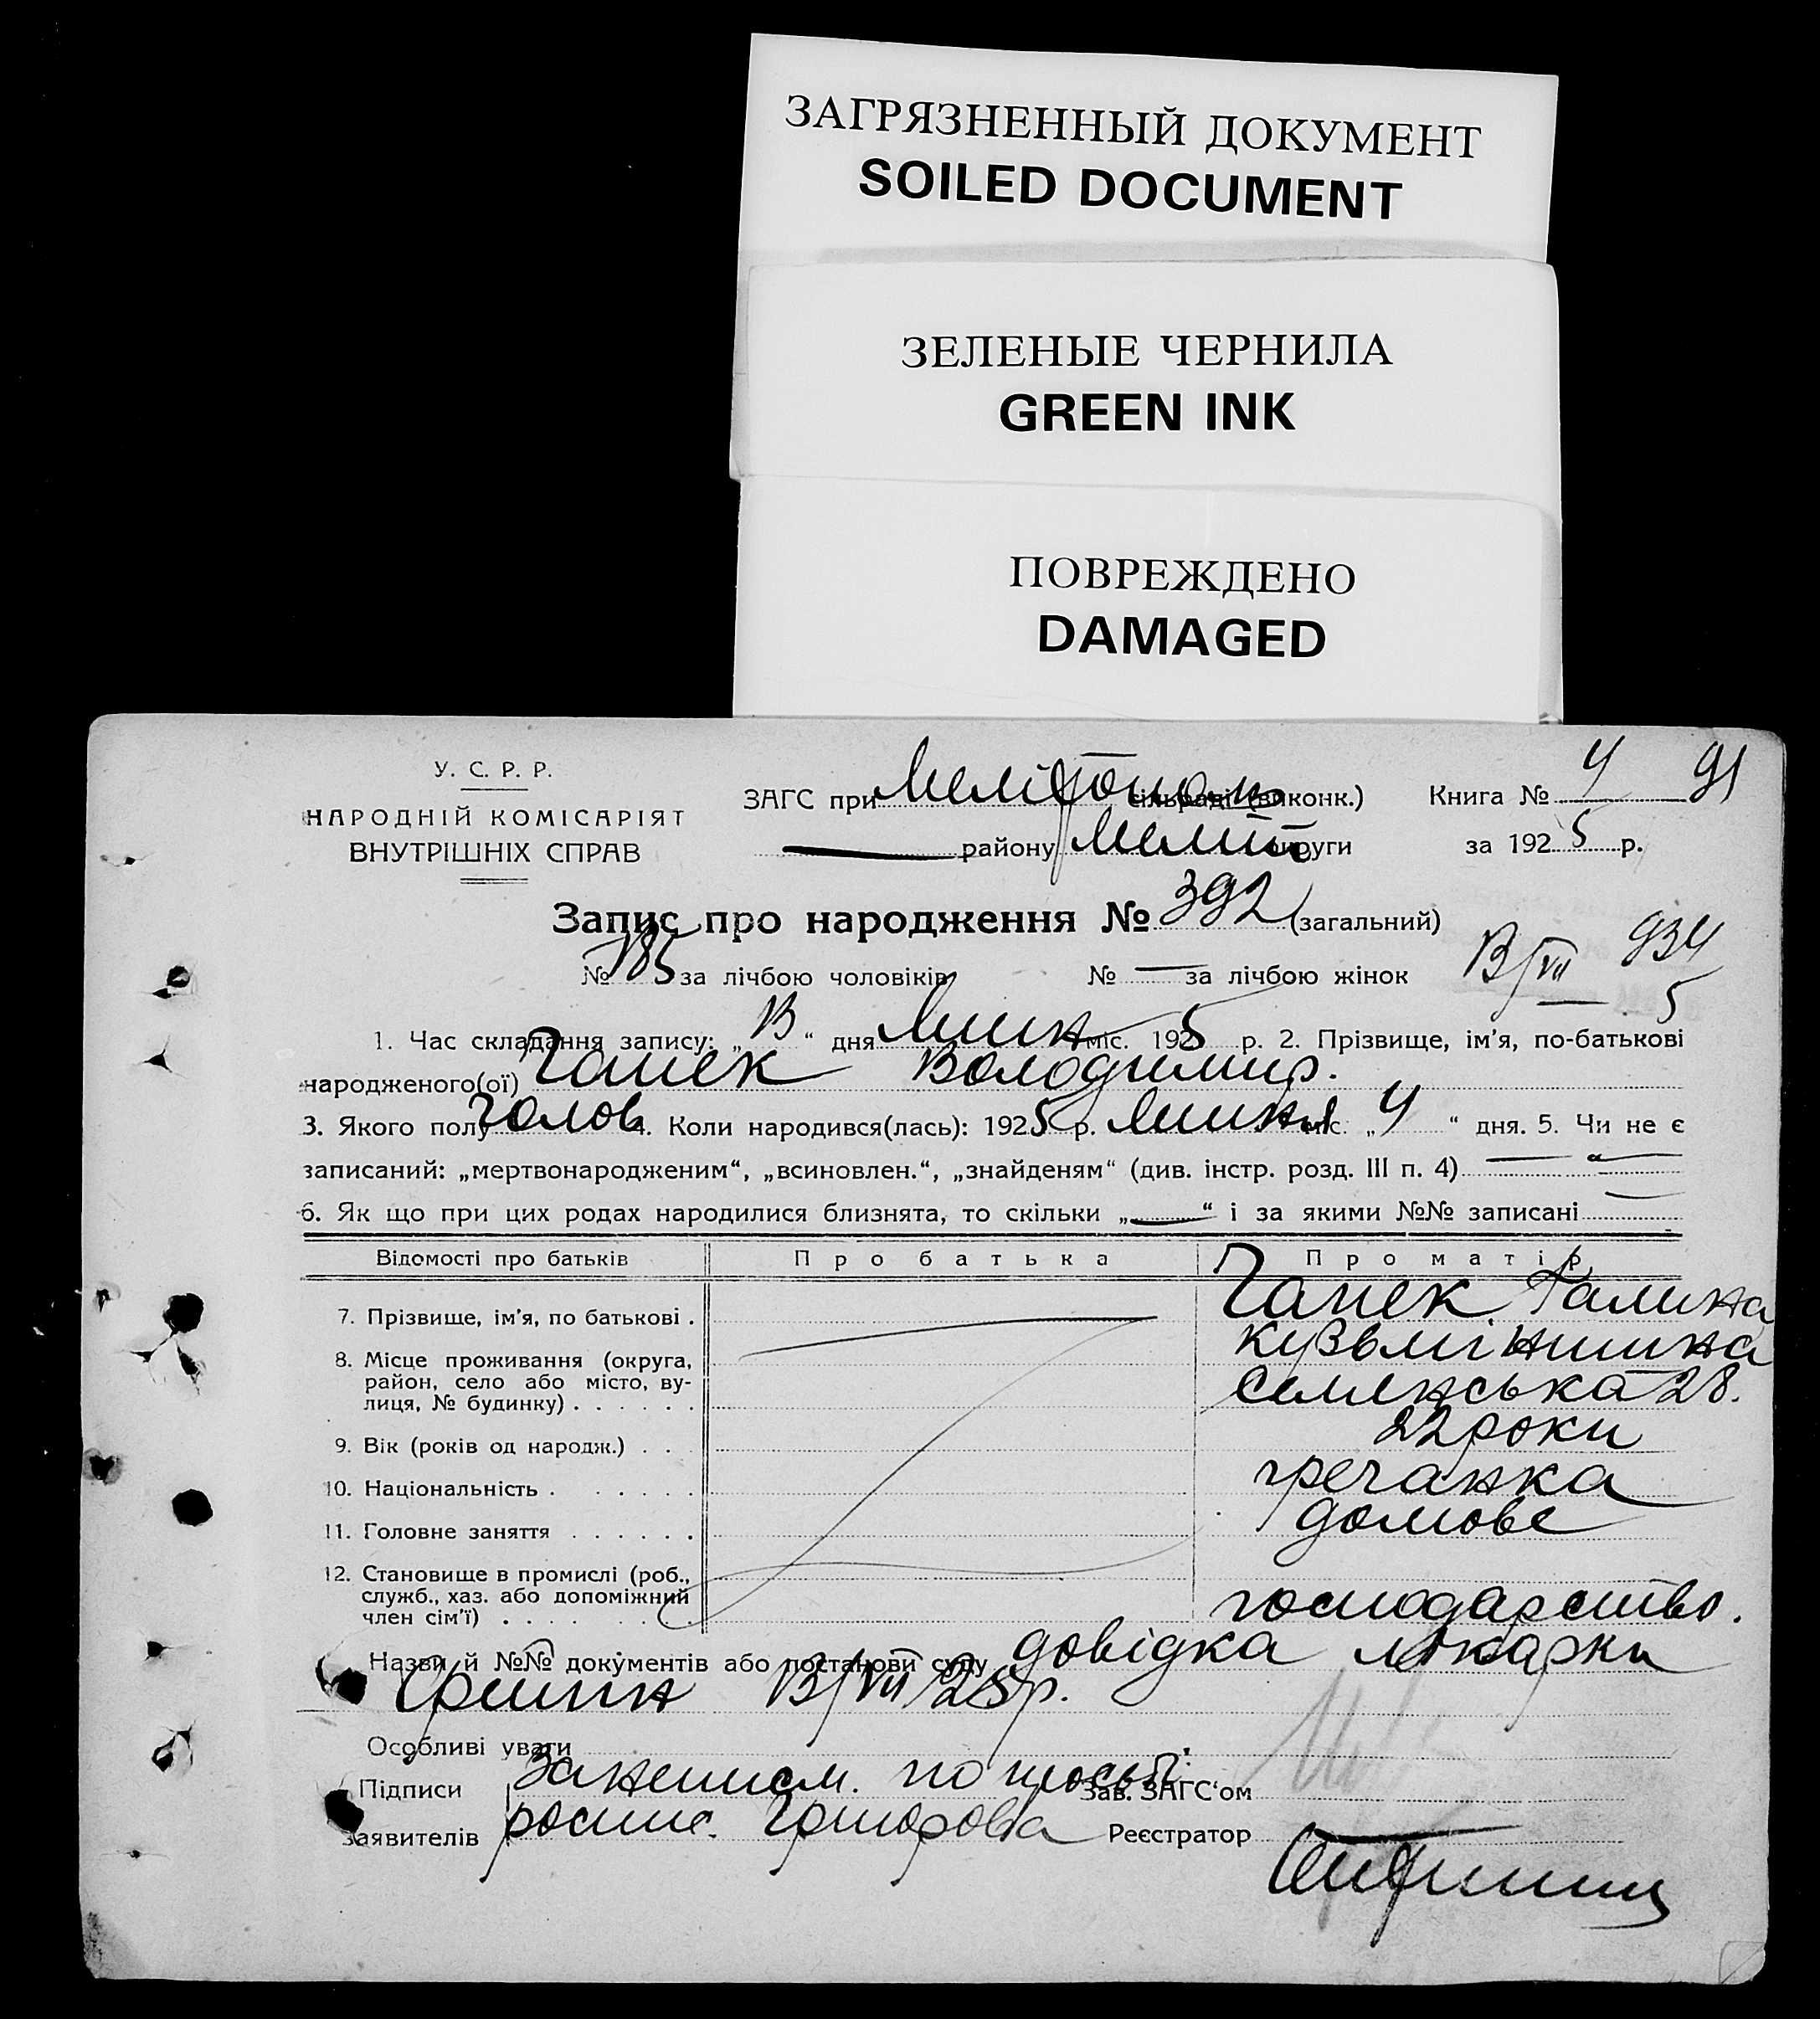 ЗАГРЯЗНЕННЫЙ ДОКУМЕНТ
SOILED DOCUMENT
ЗЕЛЕНЫЕ ЧЕРНИЛА
GREEN INK
ПОВРЕЖДЕНО
DAMAGED
У. С. Р. Р.
НАРОДНІЙ КОМІСАРІЯТ
ВНУТРІШНІХ СПРАВ
ЗАГС при сільраді (виконк.) Книга № 4 91
району Меліт округи за 1925 р.
Запис про народження № 392 (загальний)
№ 185 за лічбою чоловіків № — за лічбою жінок
1. Час складання запису: „ “ дня Липня міс. 1925 р. 2. Прізвище, ім'я, по-батькові
народженого(ої) Чапек Володимир.
3. Якого полу чолов 4. Коли народився(лась): 1925 р. Липня міс. „4 “ дня. 5. Чи не є
записаний: „мертвонародженим“, „всиновлен.“, „знайденям“ (див. інстр. розд. III п. 4)
6. Як що при цих родах народилися близнята, то скільки „—“ і за якими №№ записані
Відомості про батьків Про батька Про матір
7. Прізвище, ім'я, по батькові . Чапек Галина
Кузьмінишна
8. Місце проживання (округа,
район, село або місто, ву-
лиця, № будинку) . . . . . . 28.
9. Вік (років од народж.) . . . 22 роки
10. Національність . . . . . . гречанка
11. Головне заняття . . . . . . домове
12. Становище в промислі (роб.,
служб., хаз. або допоміжний
член сім'ї) . . . . господарство.
Назви й №№ документів або постанови суду довідка лікарки
/VII 25р.
Особливі уваги
Підписи Зав. ЗАГС'ом
заявителів Реєстратор